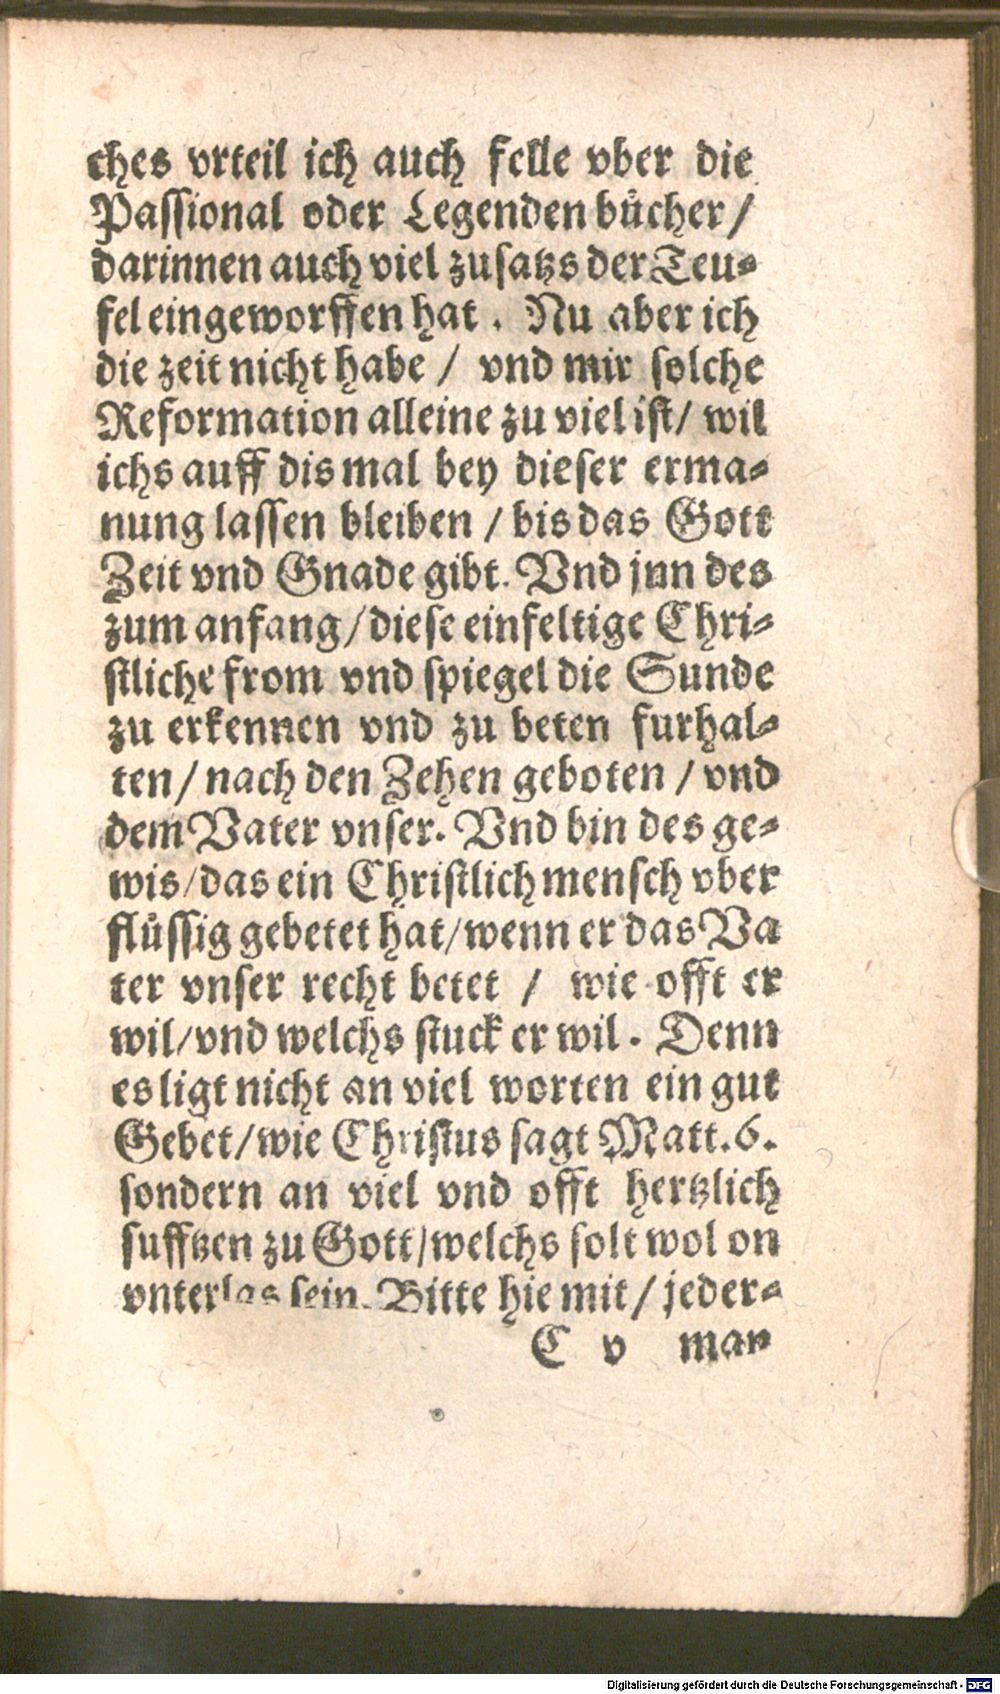 ches vrteil ich auch felle vber die
Passional oder Legenden buͤcher /
darinnen auch viel zusatzs der Teu⸗
fel eingeworffen hat . Nu aber ich
die zeit nicht habe / vnd mir solche
Reformation alleine zu viel ist / wil
ichs auff dis mal bey dieser erma⸗
nung lassen bleiben / bis das Gott
Zeit vnd Gnade gibt. Vnd jnn des
zum anfang / diese einfeltige Chri⸗
stliche from vnd spiegel die Sunde
zu erkennen vnd zu beten furhal⸗
ten / nach den Zehen geboten / vnd
dem Vater vnser. Vnd bin des ge⸗
wis / das ein Christlich mensch vber
fluͤssig gebetet hat / wenn er das Va
ter vnser recht betet / wie offt er
wil / vnd welchs stuck er wil . Denn
es ligt nicht an viel worten ein gut
Gebet / wie Christus sagt Matt. 6.
sondern an viel vnd offt hertzlich
sufftzen zu Gott / welchs solt wol on
vnterlas sein. Bitte hie mit / jeder⸗
C v man
Digitalisierung gefördert durch die Deutsche Forschungsgemeinschaft - DFG